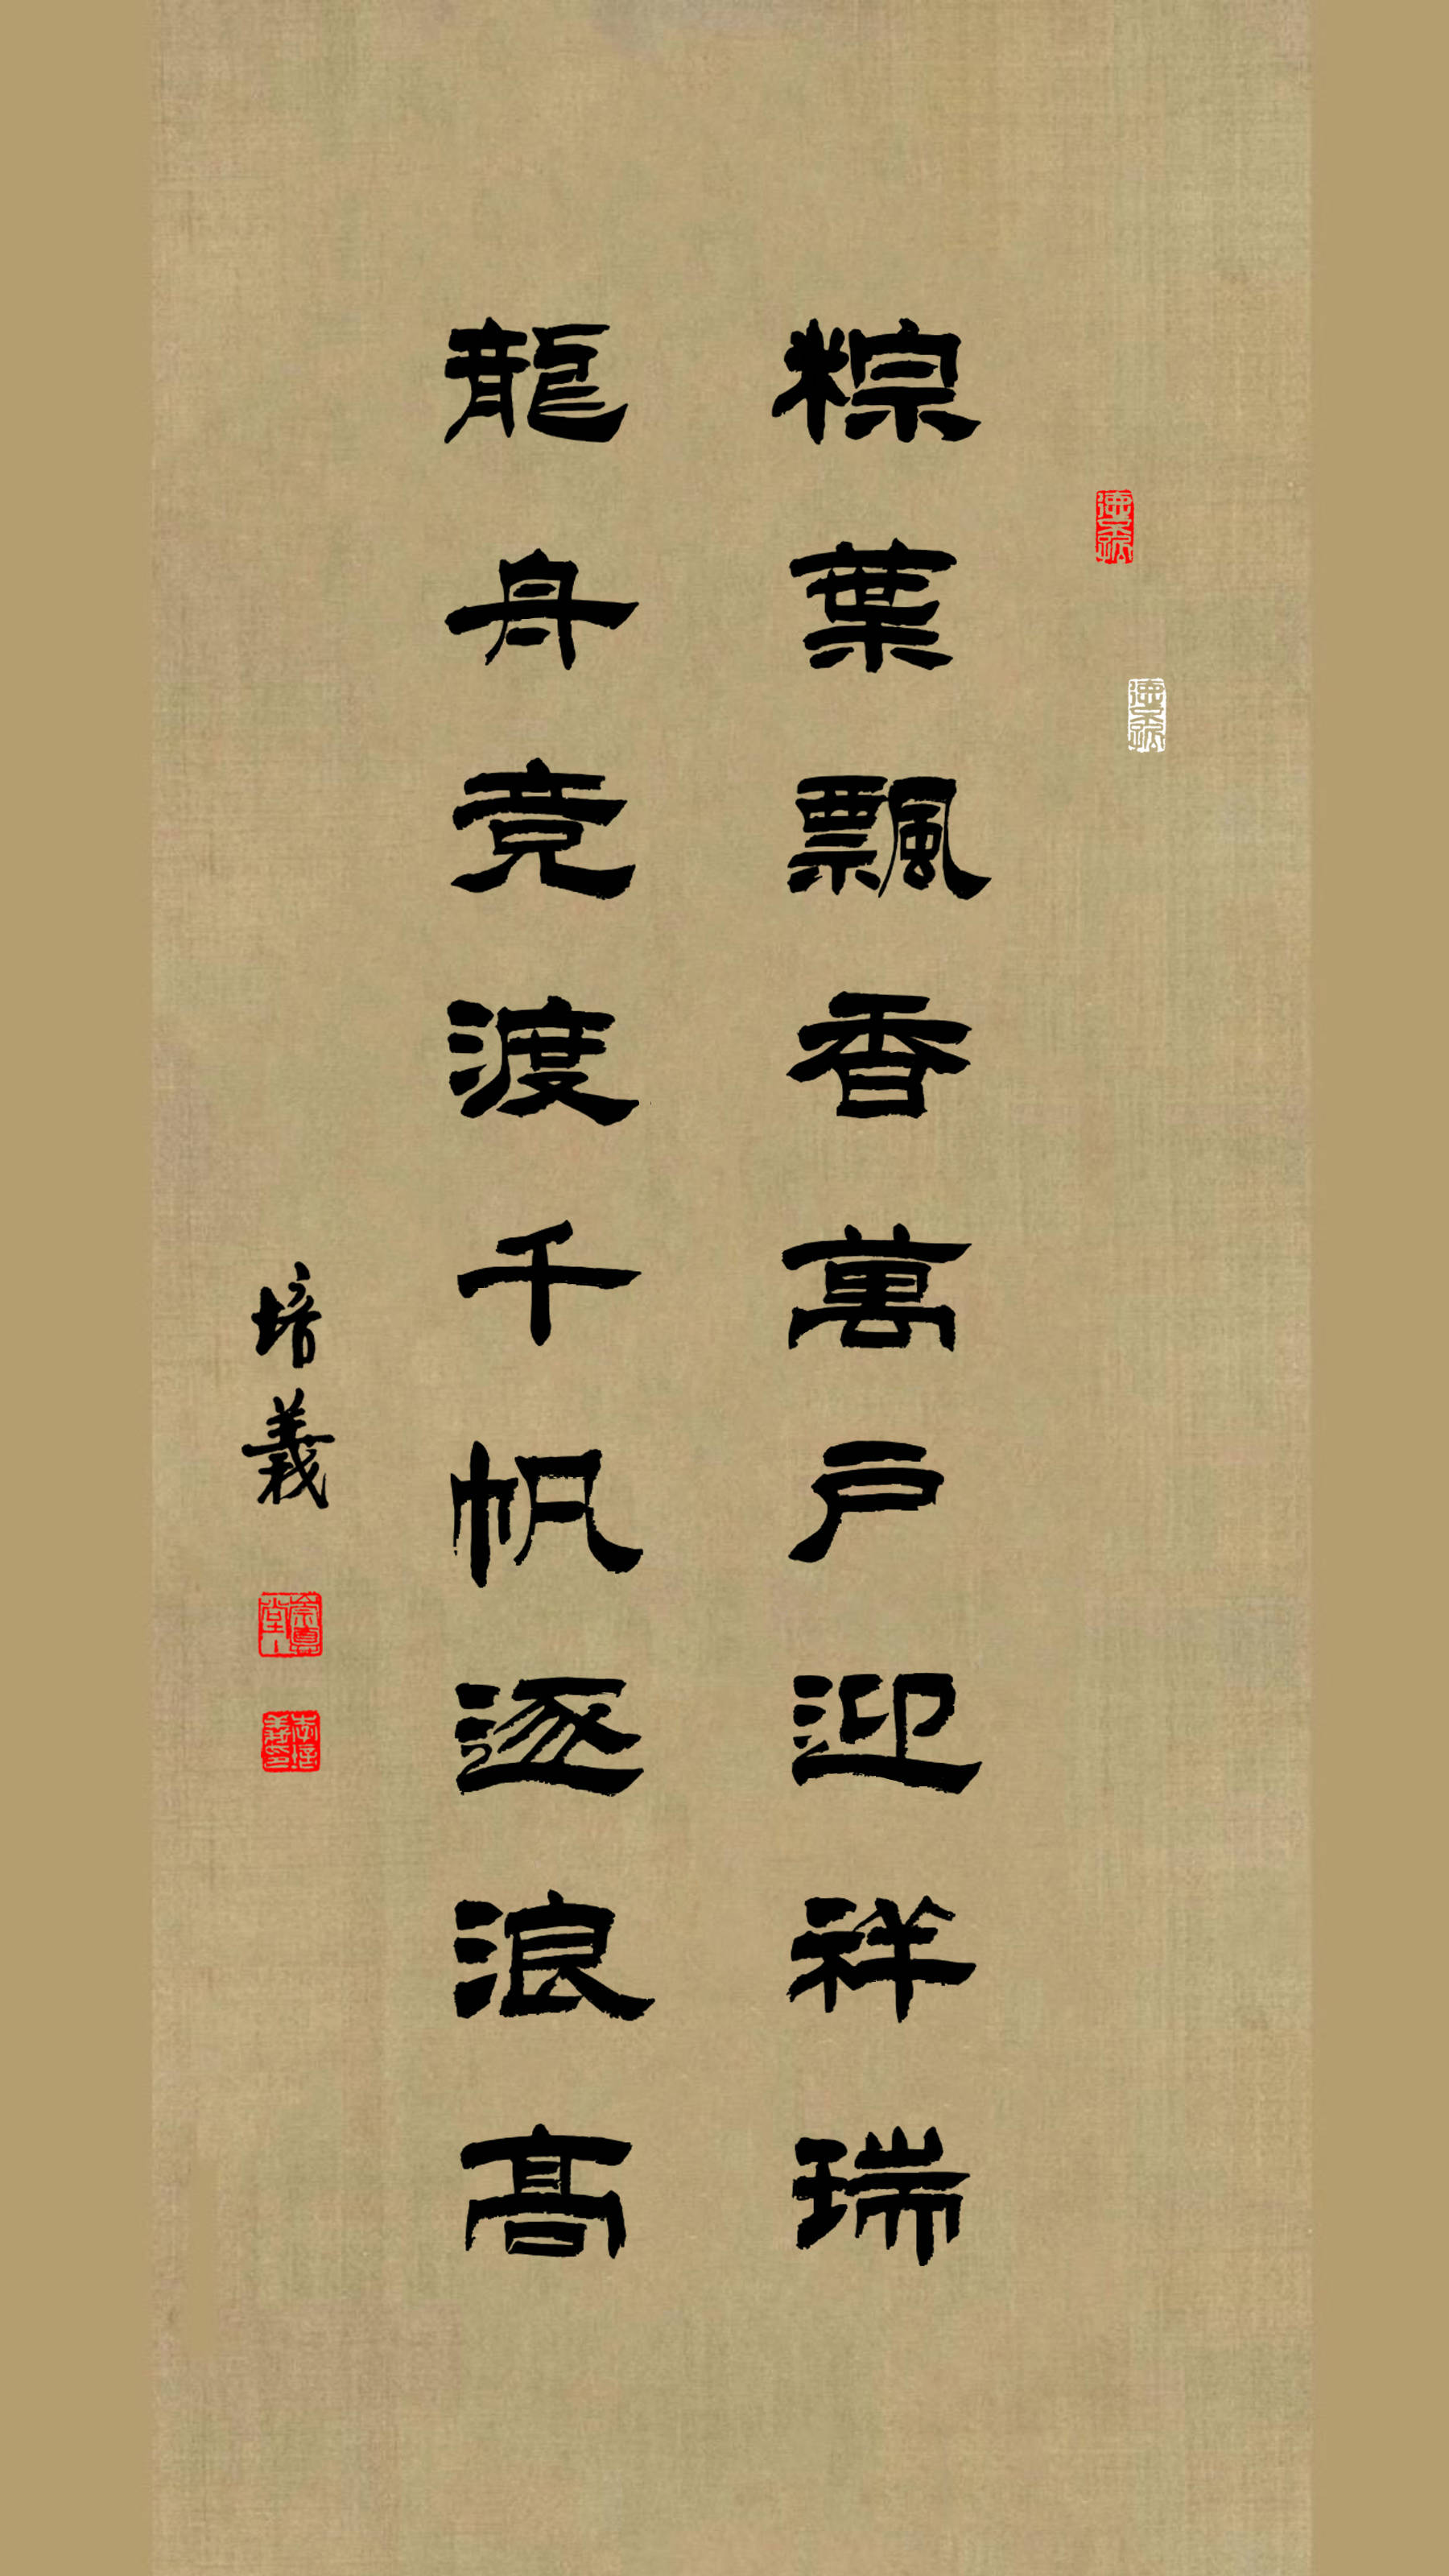 粽葉飄香萬户迎祥瑞
龍舟竞渡千帆逐浪高
培義